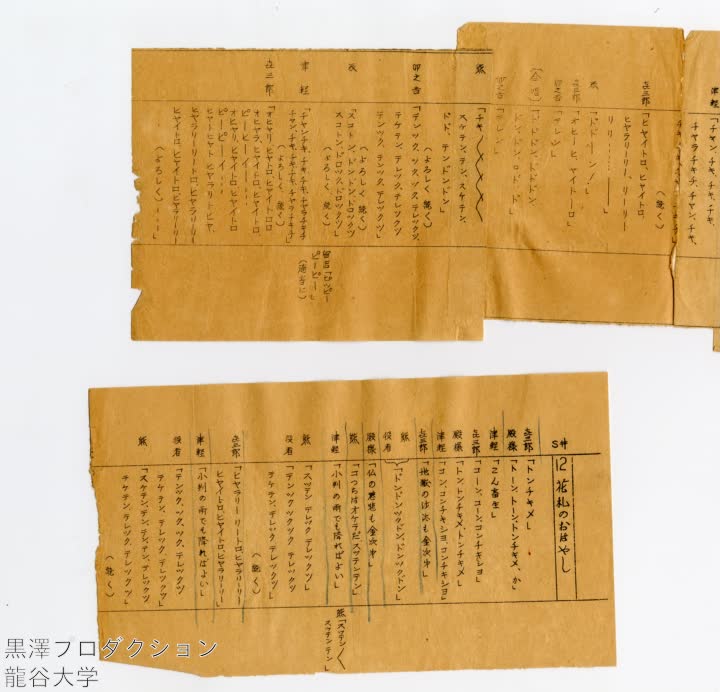 津軽「チャン、チキ、チャ、チキ、
チャラチキチ、チャン、チキ、
㐂三郎「ヒヤイトロ、ヒヤイトロ、
ヒヤラリーリー、リーリー
(続く)
「ドドーン!」
リリ————」
㐂三郎「オヒーヒ、ヤイトーロ」
卯之吉「テレン」
(合唱)「ドドドン、ドドドン、
ドンドン、ロ、ド、ド」
卯之吉「テレン」
熊「チャ
スケテン、テン、スケテン、
ドド、テンドンドン」
(よろしく続く)
卯之吉「テンツク、ツク、ツク、テレックツ、
テケテン、テレツク、テレックツ
テンツク、テンツク、テレックツ」
(よろしく続く)
「スコトン、ドンドン、ドロックツ
スコトン、ドロック、ドロックツ」
(よろしく、続く)
津軽「チャンチキ、チキ、チキ、チャラチキチ
チャンチキ、チキ、チキ、チャラチキチ」
(よろしく、続く)
㐂三郎「オヒヤリ、ヒヤイトロ、ヒヤイトロロ
オヒヤラ、ヒヤイトロ、ヒヤイトロ、
ピーヒーイー・・・・
オヒヤイトロ、ヒヤイトロ、ヒヤイトロ
ピーピーイ・・・・
ヒヤトヒヤト、ヒヤラリー、ヒヤ、
ヒヤラリーリトロ、ヒヤラリーリー
ヒヤイトロ、ヒヤイトロ、ヒヤラリーリー
(よろしく)ーー・・」
留吉「ピッピー
ピーピー」
S#12 花札のおはやし
㐂三郎「トンチキメ」
殿様「トーン、トーン、トンチキメ、か」
津軽「こん畜生」
㐂三郎「コーン、コーンコンチキショョ」
殿様「トン、トンチキメ、トンチキメ」
津軽「コン、コンチキショ、コンチキショ」
㐂三郎「地獄の沙汰も金次第」
熊
役者「ドンドンツクドン、ドンツクトン」
殿様「仏の慈悲も金次第」
熊「コっちはオケラだ スッテンテン」
津軽「小判の雨でも降ればよい」
熊「スッテン テレック テレックツ」
役者「テンツクツクツク テレックツ
テケテン、テレック、テレックツ」
(続く)
㐂三郎「ヒヤラリーリートロ、ヒヤラリーリー
ヒヤイトロ、ヒヤイトロ、ヒヤラリーリー」
津軽「小判の雨でも降ればよい」
役者「テンツク、ツク、ツク、テレックツ
テケテン、テレック、テレックツ」
熊「スケテン、テン、テンテン、テレックツ
テケテン、テレック、テレックツ」
(続く)
熊「スッテン
スッテンテン」
黒澤プロダクション
龍谷大学